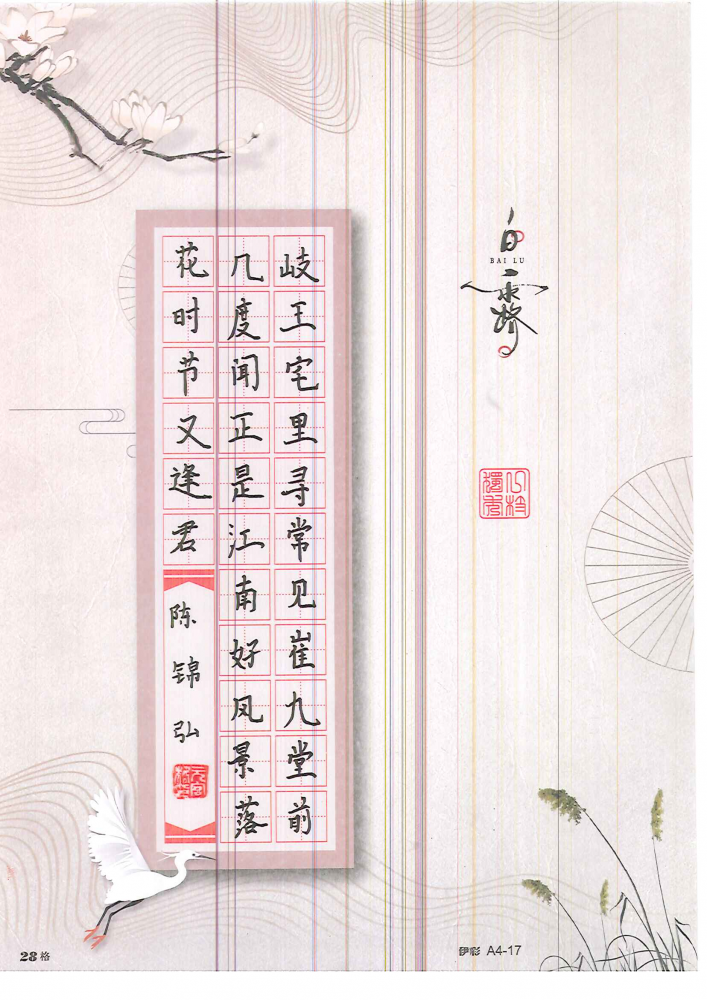 白露
BAI LU
岐王宅里寻常见崔九堂前
几度闻正是江南好风景落
花时节又逢君
陈锦弘
28格
伊彩 A4-17